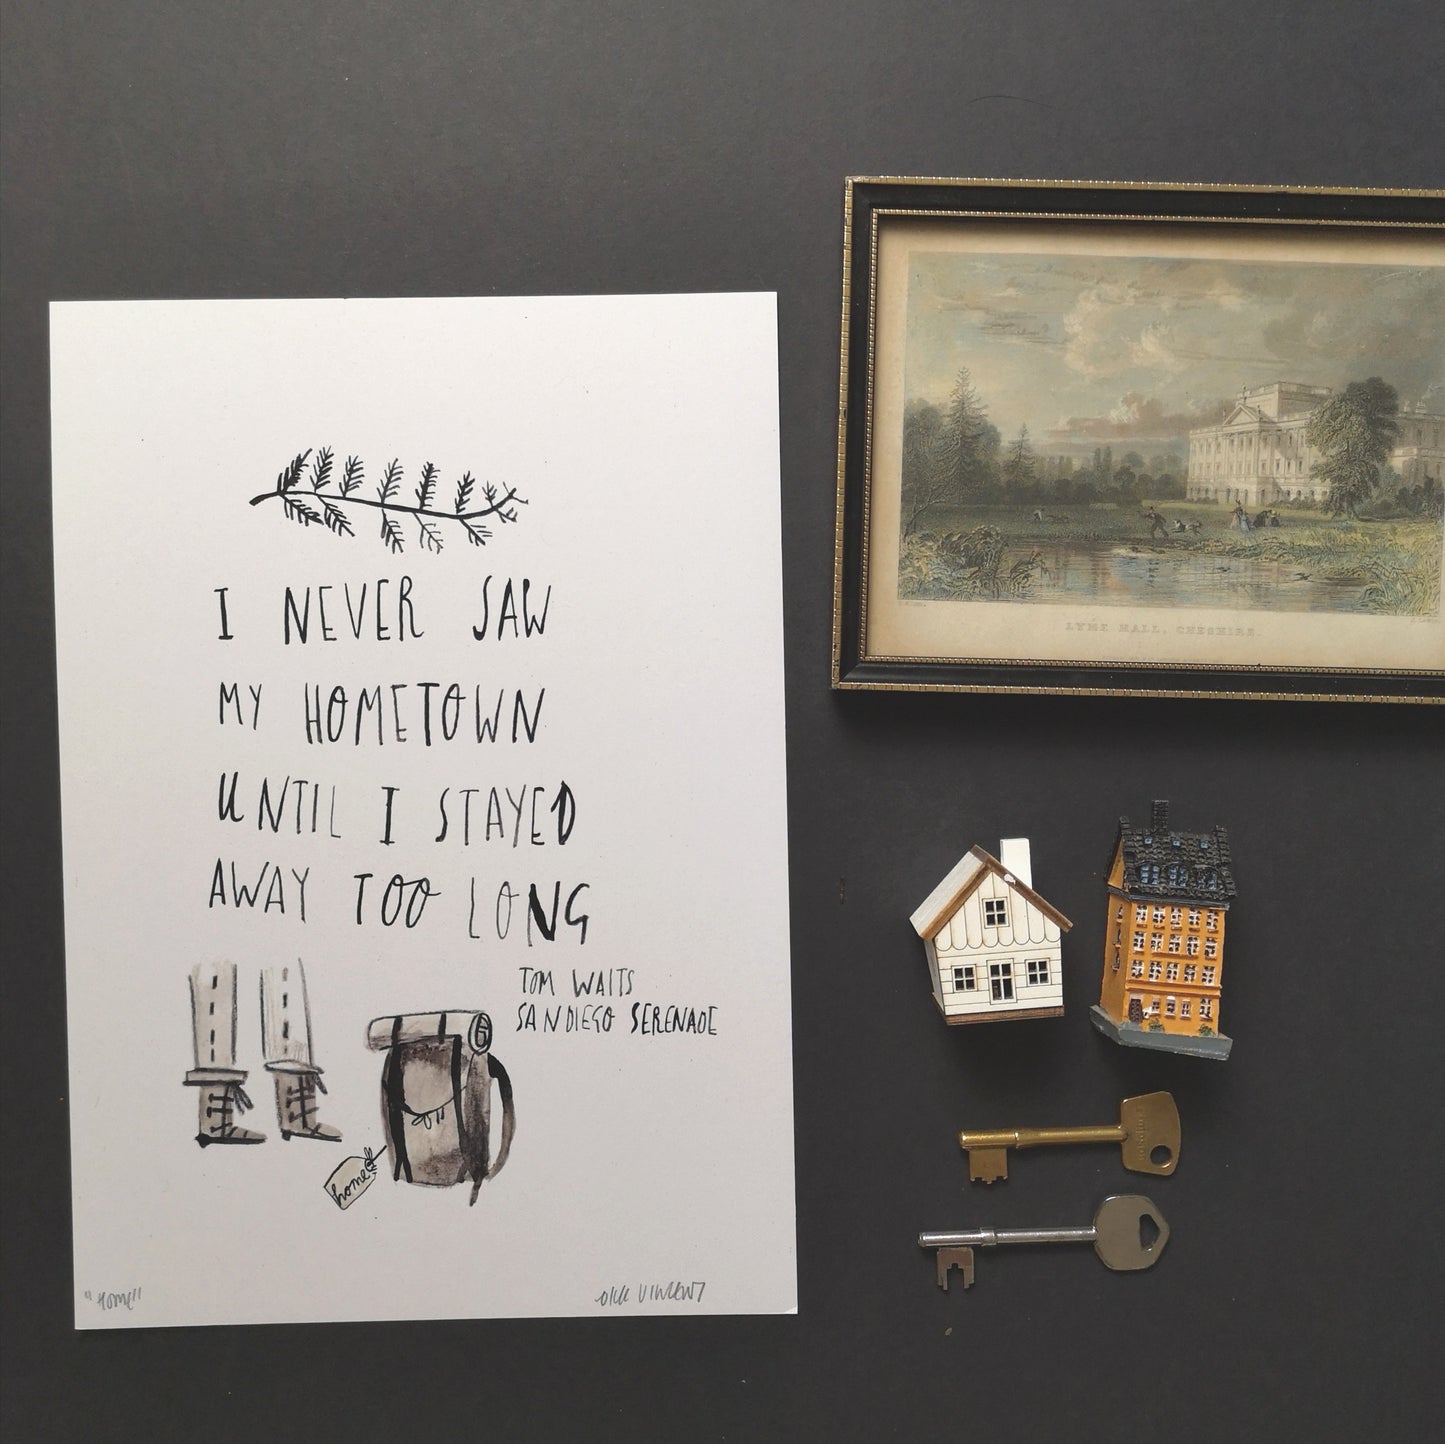 I NEVER SAW
MY HOMETOWN
UNTIL I STAYED
AWAY TOO LONG
TOM WAITS
SAN DIEGO SERENADE
home
"Home"
DICK VINCENT
LYME HALL, CHESHIRE.